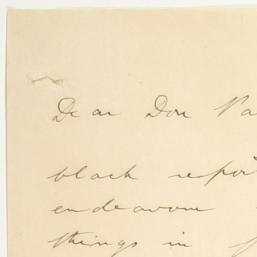 Dear Don Pa
black repor
endeavour
things in